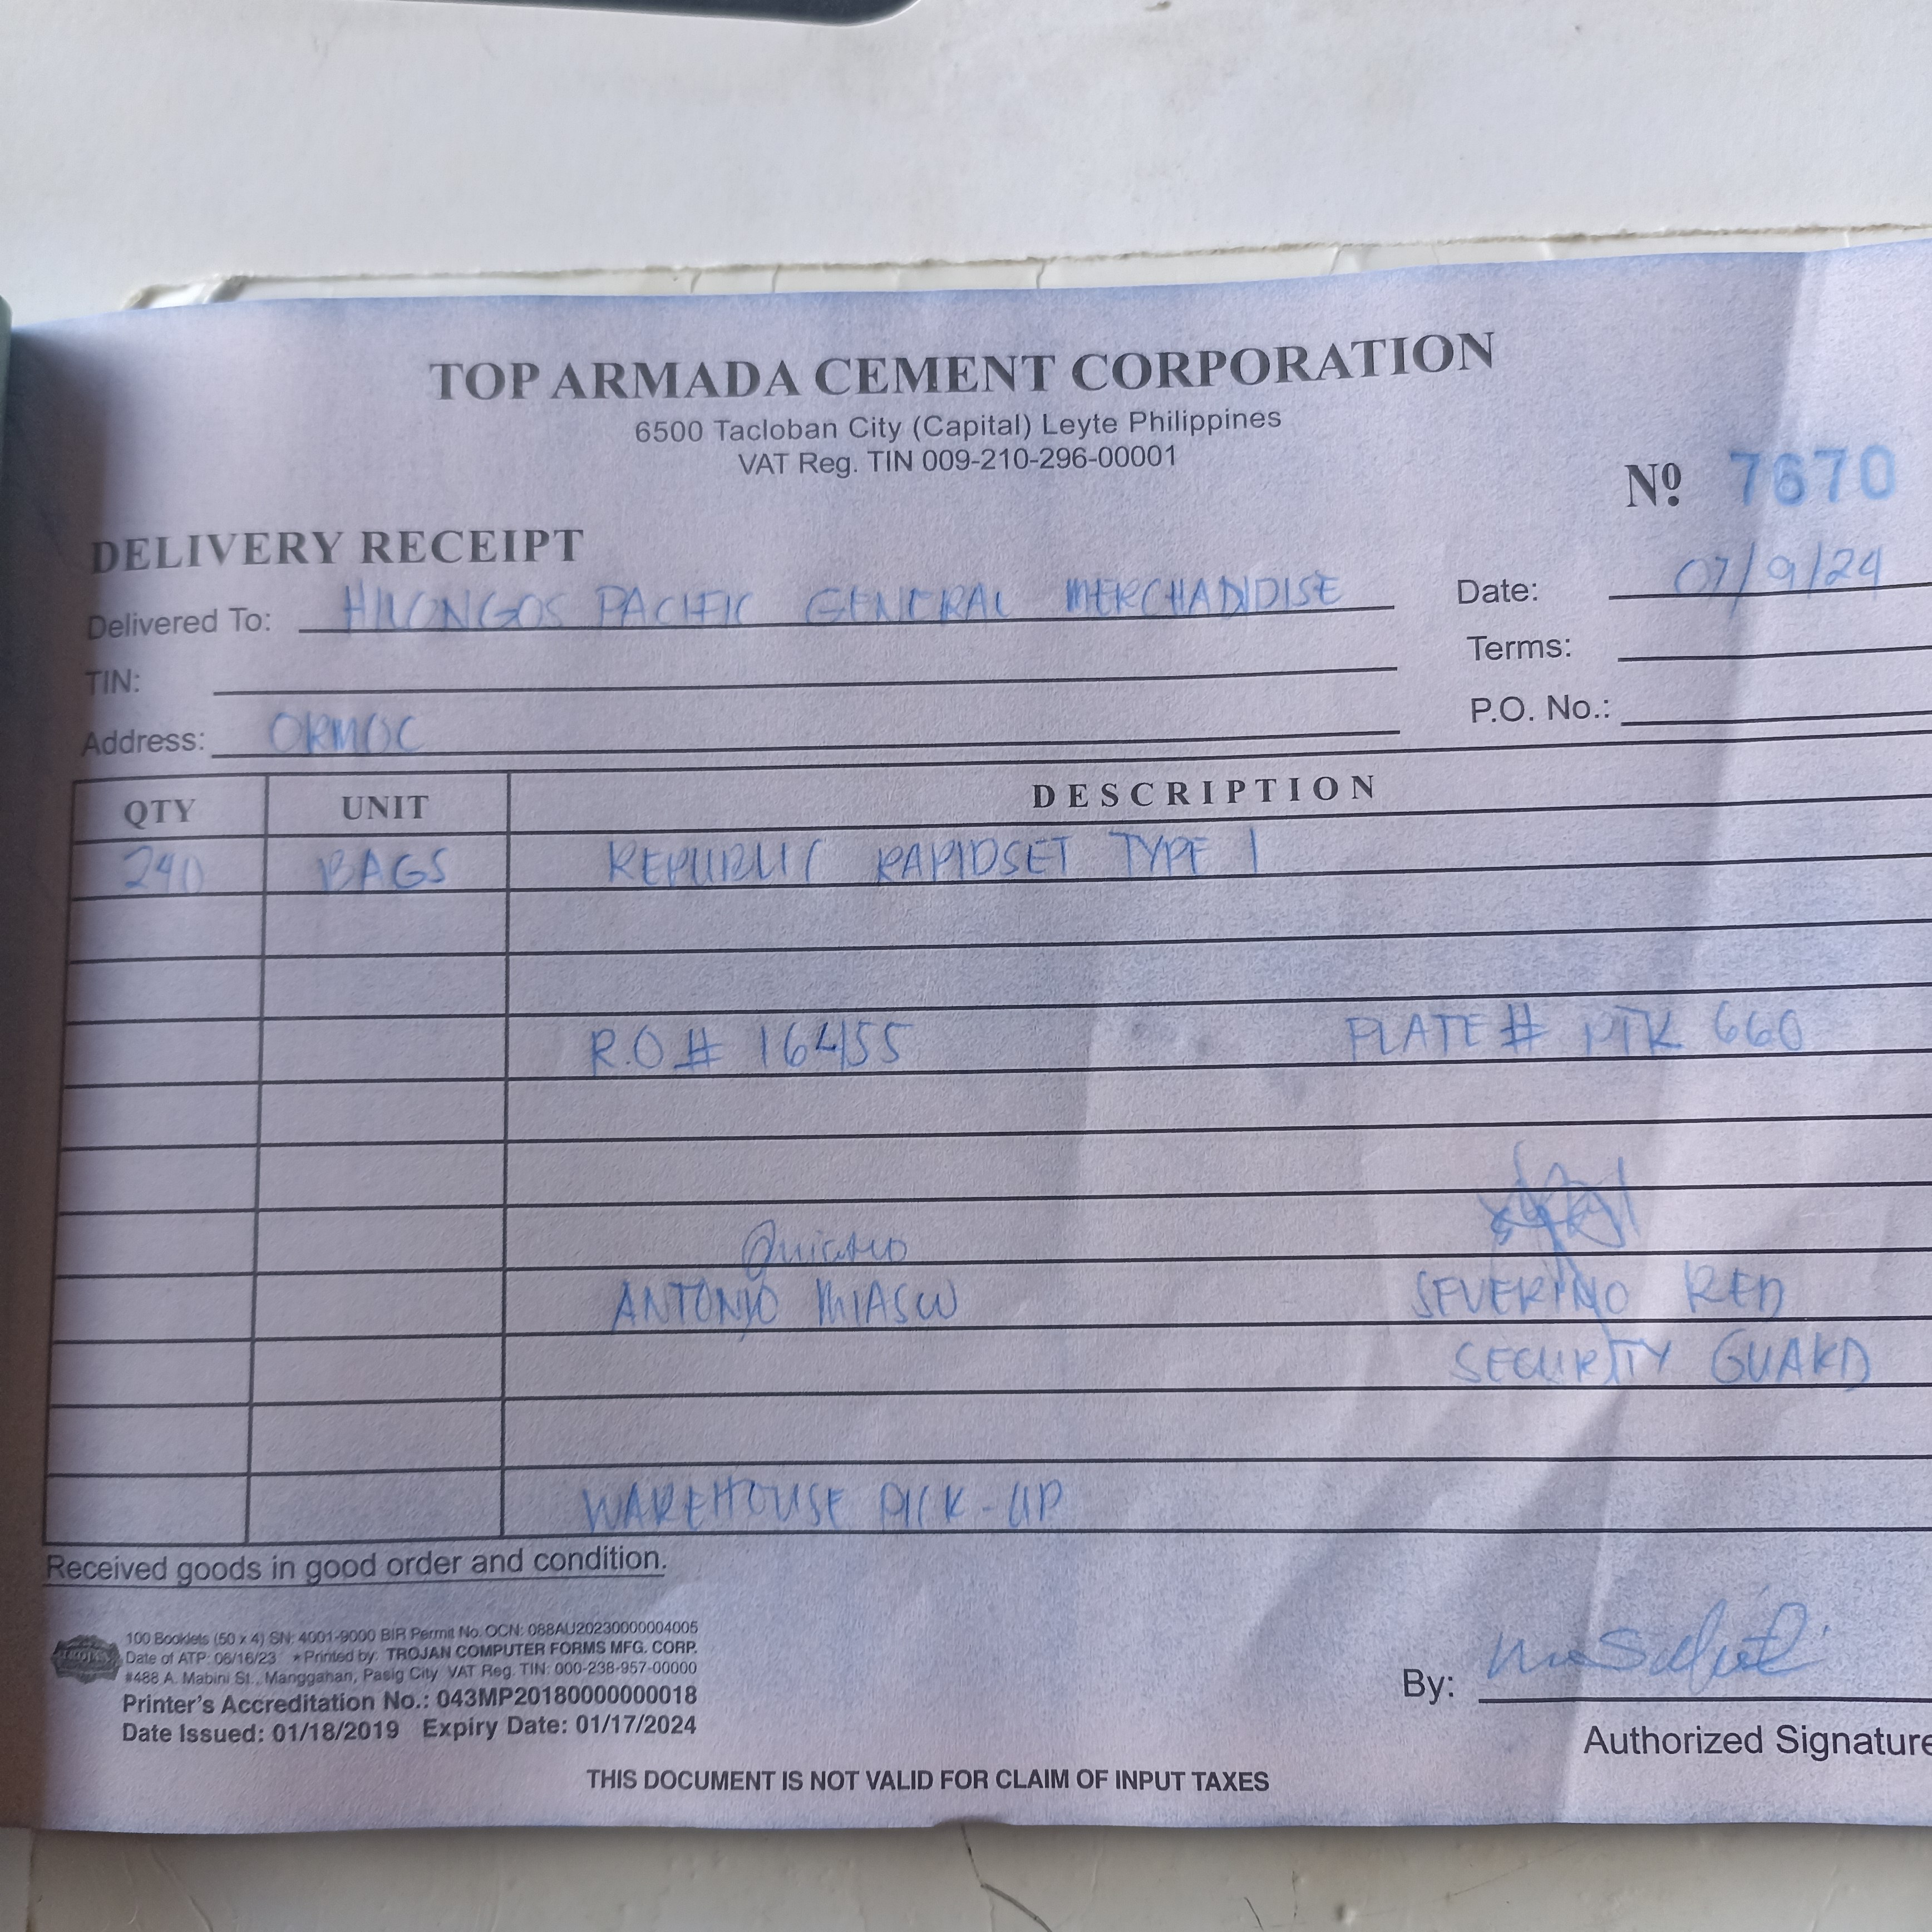 TOP ARMADA CEMENT CORPORATION
6500 Tacloban City (Capital) Leyte Philippines
VAT Reg. TIN 009-210-296-00001
Nº 7670
DELIVERY RECEIPT
Delivered To: HILONGOS PACIFIC GENERAL MERCHANDISE Date: 07/9/24
TIN: Terms:
Address: ORMOC P.O. No.:
QTY UNIT DESCRIPTION
240 BAGS REPUBLIC RAPIDSET TYPE 1
R.O # 16455 PLATE # PTK 660
ANTONIO SEVERINO RED
SECURITY GUARD
WAREHOUSE PICK-UP
Received goods in good order and condition.
100 Booklets (50 x 4) SN: 4001-9000 BIR Permit No. OCN: 088AU20230000004005
Date of ATP: 06/16/23 * Printed by: TROJAN COMPUTER FORMS MFG. CORP.
#488 A. Mabini St., Manggahan, Pasig City VAT Reg. TIN: 000-238-957-00000
Printer's Accreditation No.: 043MP20180000000018
Date Issued: 01/18/2019 Expiry Date: 01/17/2024
By:
Authorized Signature
THIS DOCUMENT IS NOT VALID FOR CLAIM OF INPUT TAXES